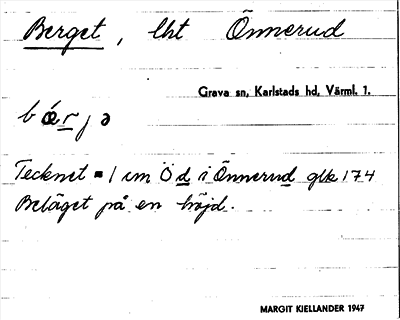 Berget, lht Önnerud
Grava sn, Karlstads hd, Värml. l.
b ǽ r j ə
Tecknet = 1 cm Ö d i Önnerud glk 174
Beläget på en höjd.
MARGIT KIELLANDER 1947